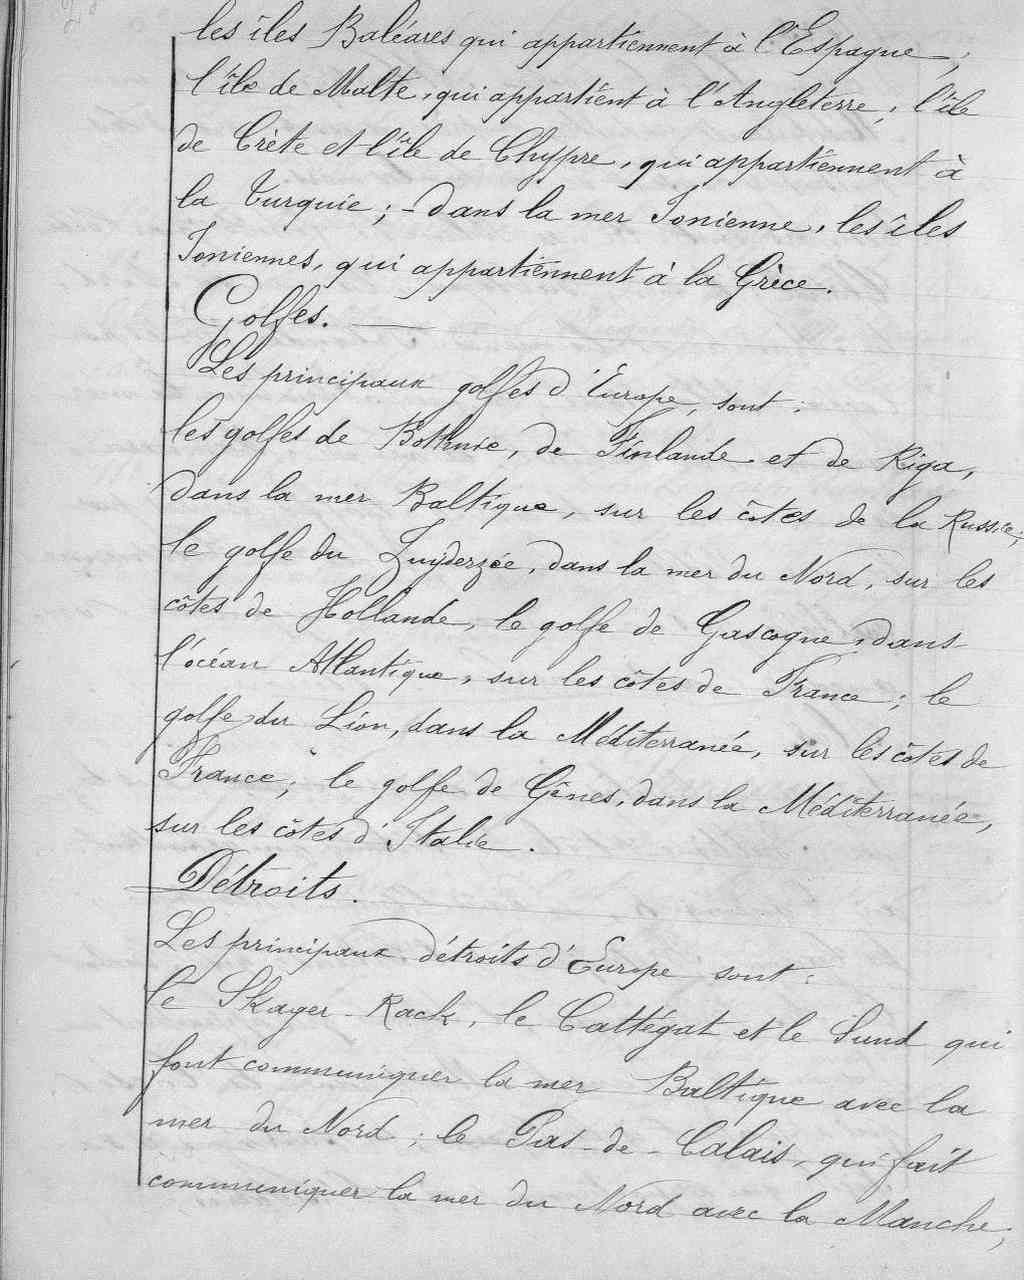 les îles Baléares qui appartiennent à l'Espagne ;
l'île de Malte, qui appartient à l'Angleterre ; l'île
de Crète et l'île de Chypre, qui appartiennent à
la Turquie ; - dans la mer Ionienne, les îles
Ioniennes, qui appartiennent à la Grèce.
Golfes.
Les principaux golfes d'Europe, sont :
les golfes de Bothnie, de Finlande et de Riga,
dans la mer Baltique, sur les côtes de la Russie ;
le golfe du Zuyderzée, dans la mer du Nord, sur les
côtes de Hollande, le golfe de Gascogne, dans
l'océan Atlantique, sur les côtes de France ; le
golfe du Lion, dans la Méditerranée, sur les côtes de
France ; le golfe de Gênes, dans la Méditerranée,
sur les côtes d'Italie.
Détroits.
Les principaux détroits d'Europe sont :
le Skager-Rack, le Cattégat et le Sund qui
font communiquer la mer Baltique avec la
mer du Nord ; le Pas-de-Calais, qui fait
communiquer la mer du Nord avec la Manche ;